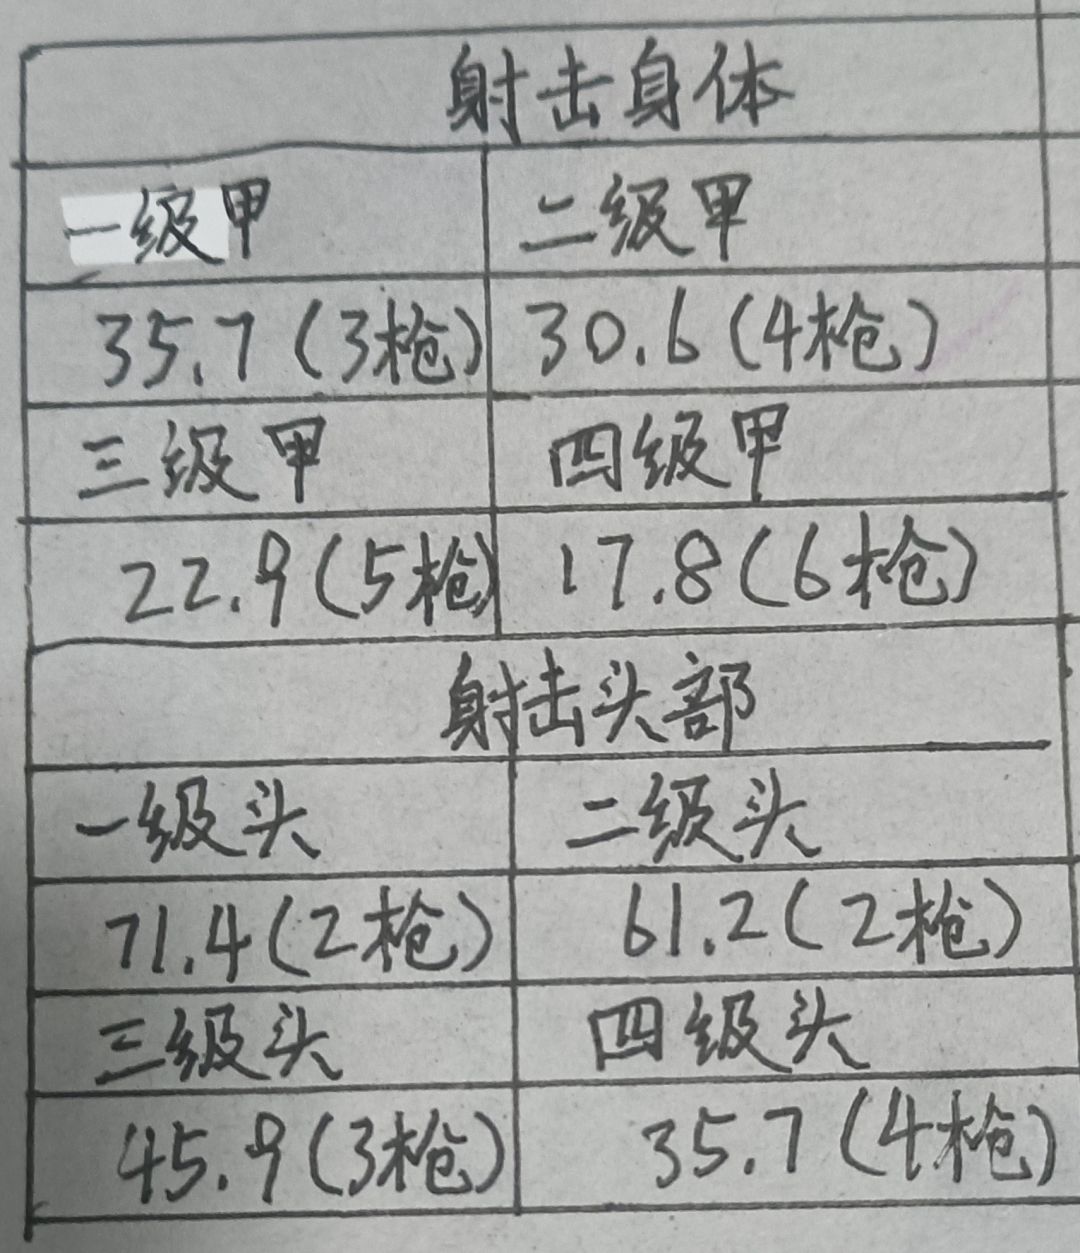 射击身体
一级甲 二级甲
35.7(3枪) 30.6(4枪)
三级甲 四级甲
22.9(5枪) 17.8(6枪)
射击头部
一级头 二级头
71.4(2枪) 61.2(2枪)
三级头 四级头
45.9(3枪) 35.7(4枪)